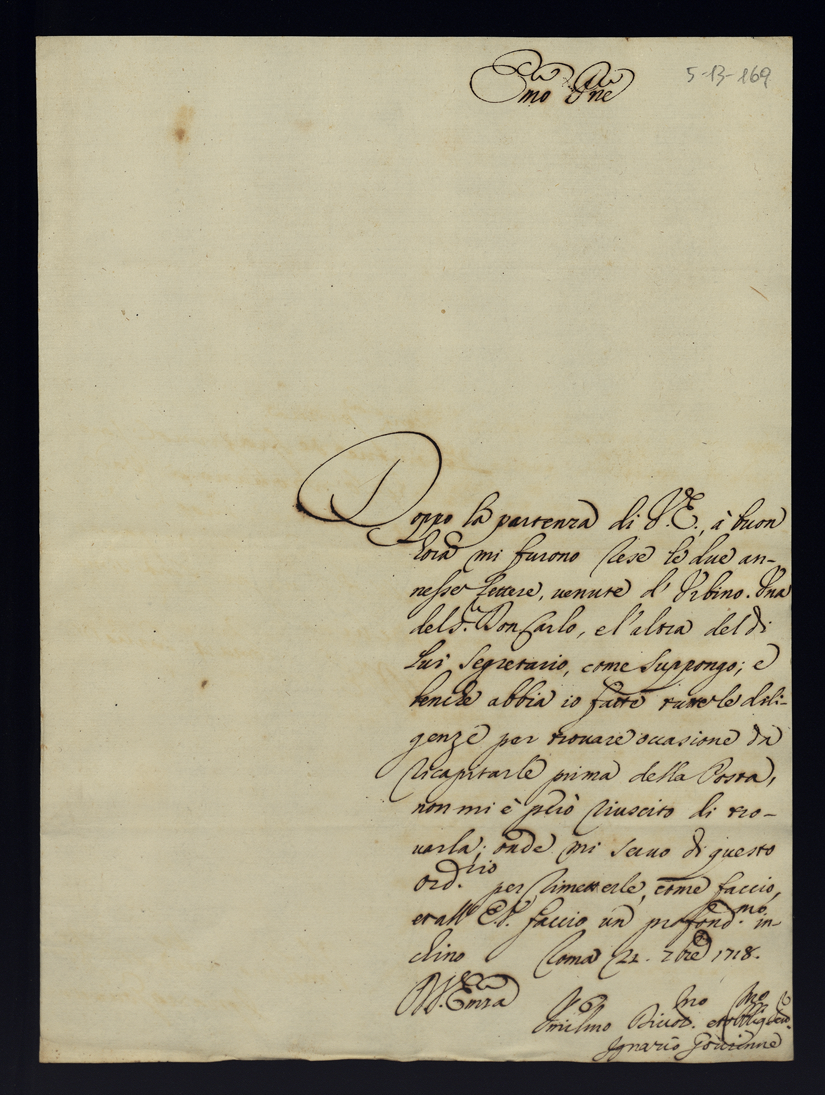 Emo Pne
5-13-169
Doppo la partenza di V.E., à buon
hora mi furono rese le due an-
nesse lettere, venute d'Urbino. Una
del S.r Don Carlo, e l'altra del di
lui Segretario, come suppongo; e
benche abbia io fatte tutte le dili-
genze per trovare occasione da
ricapitarle prima della Posta,
non mi è però riuscito di tro-
varla; onde mi servo di questo
ord.rio per rimetterle, come faccio,
et all' E.V. faccio un profond.mo in-
chino Roma 21. 7bre 1718.
D V. Emza
V.o Umilmo Divot.mo et Obliga.mo
Ignazio